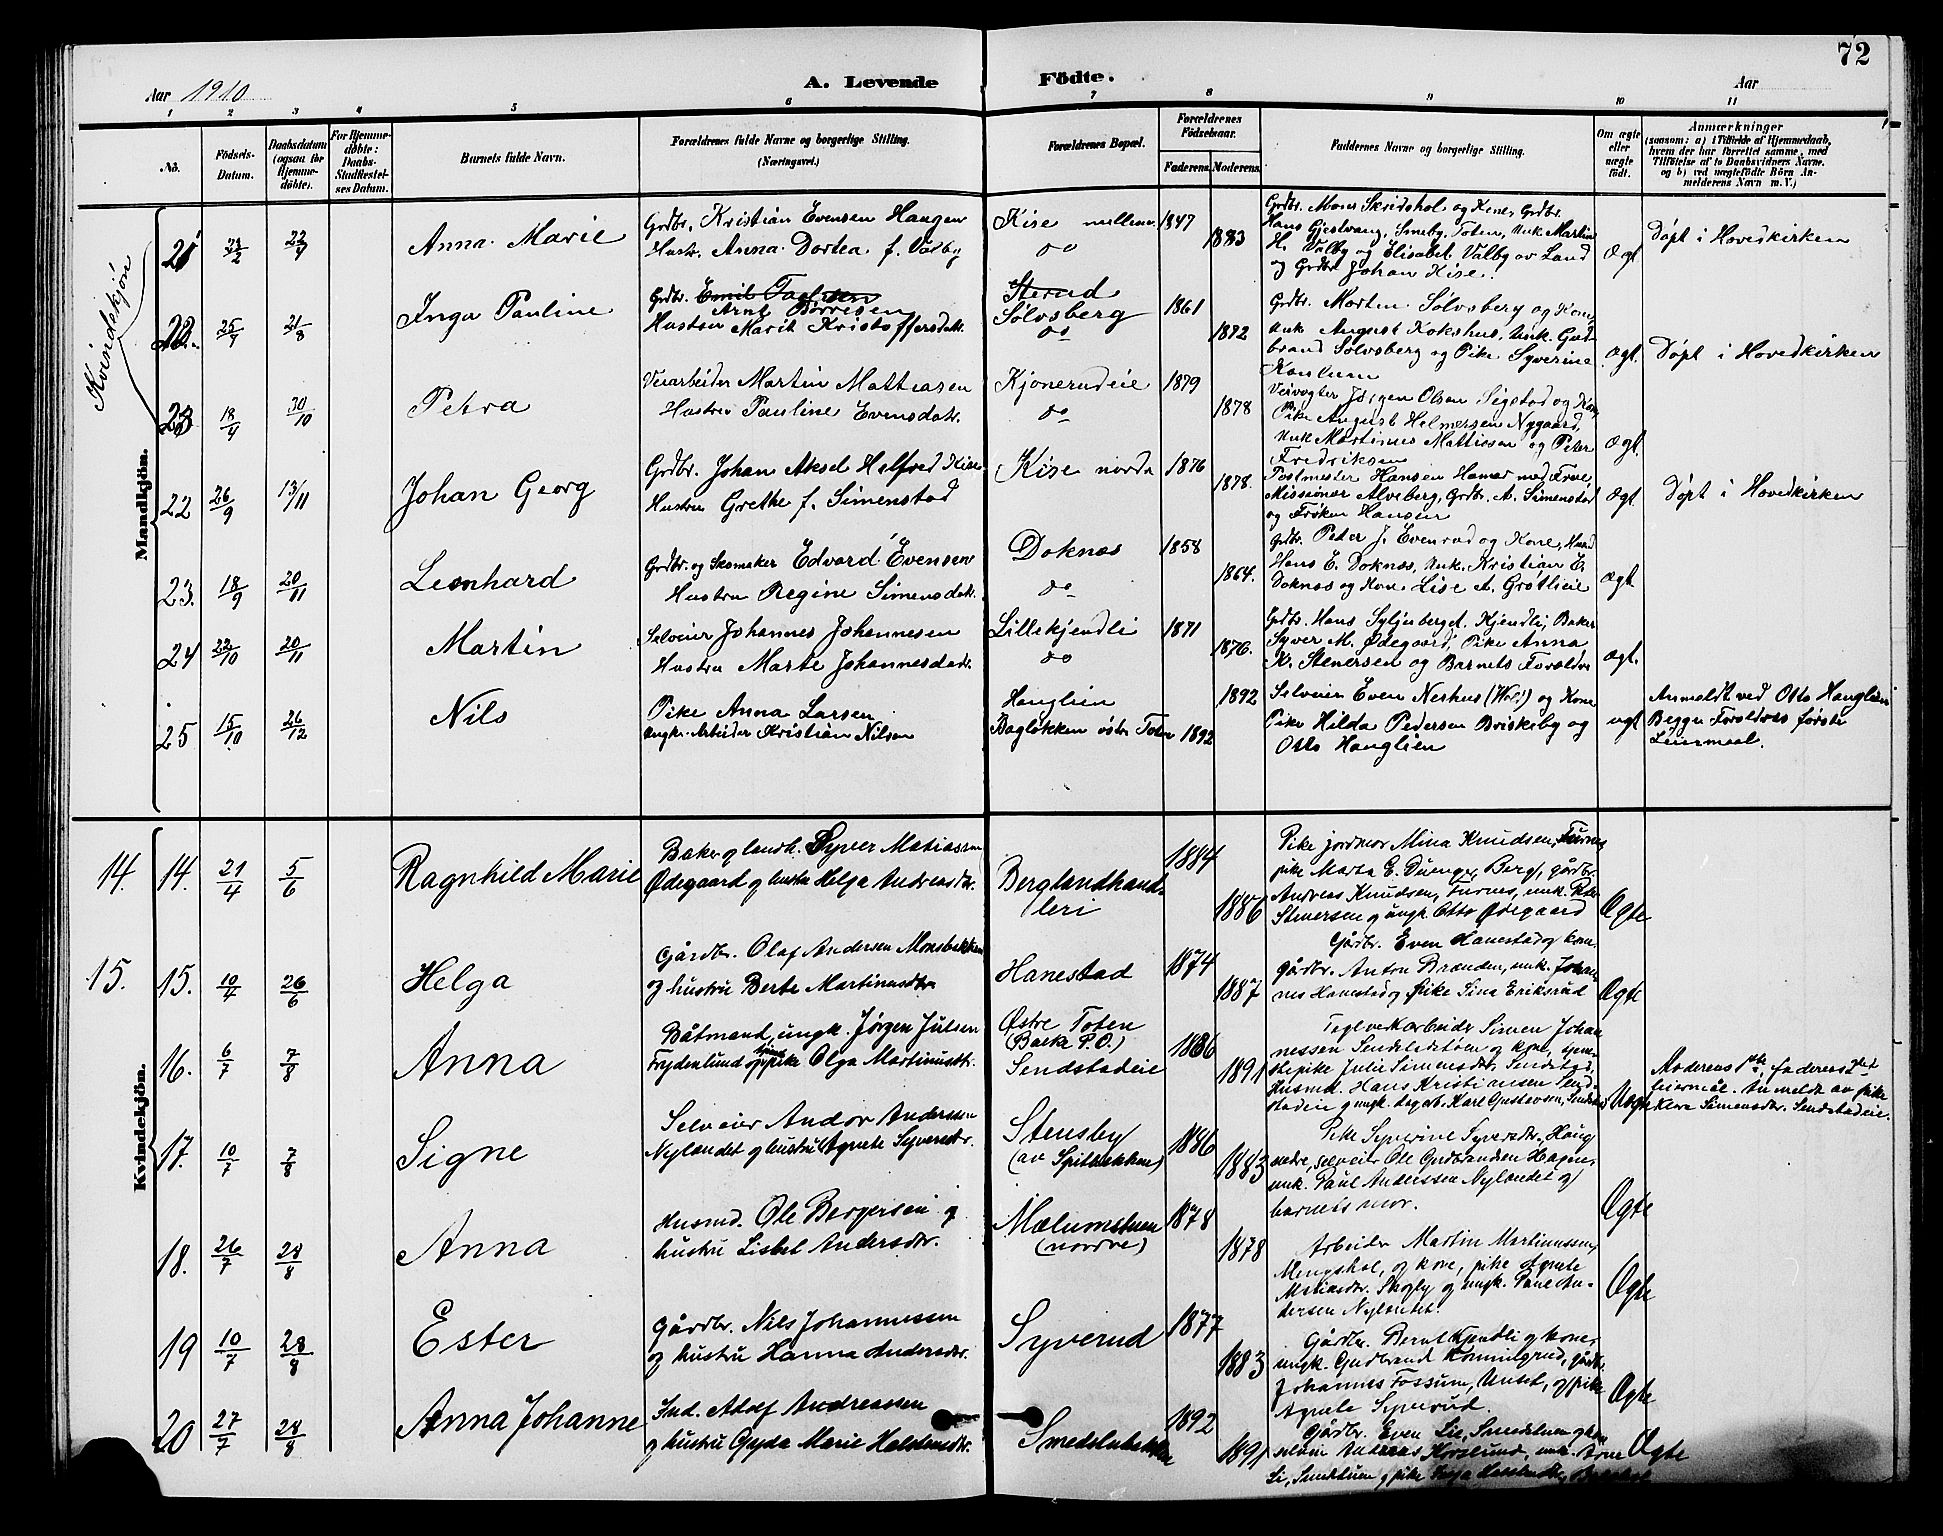 72
Aar 1910
A. Levende Födte.
Aar
1 2 3 4 5 6 7 8 9 10 11
No.
Födsels-Datum.
Daabsdatum (ogsaa for Hjemme-döbte).
For Hjemme-döbte: Daabs-Stadfæstel-ses Datum.
Barnets fulde Navn.
Forældrenes fulde Navne og borgerlige Stilling. (Næringsvei.)
Forældrenes Bopæl.
Forældrenes Födselsaar.
Faderens. Moderens.
Faddernes Navne og borgerlige Stilling.
Om ægte eller uægte födt.
Anmærkninger
(saasom: a) i Tilfælde af Hjemmedaab, hvem der har forrettet samme, med Tilföielse af to Daabsvidners Navne. og b) ved uægtefödte Börn Anmelderens Navn m. V.)
Kvindekjøn
Mandkjön.
21 23/2 22/4 Anna Marie
Grdbr. Kristian Evensen Haugen
Hustr. Anna Dortea f. Valby
Kise mellem 1847
do 1883
Grdbr. Mons Skridshol og Kone, Grdbr.
Hans Gjestvang, Smeby, Toten, Unk Martin
H. Valby og Elisabet Valby av Land
og Grdbr Johan Kise.
Ægt
Døpt i Hovedkirken
22. 25/7 21/8 Inga Pauline
Grdbr. Emil
Arne Børresen
Hustru Marit Kristoffersdatr.
Sterud
Sølvsberg 1861
do 1872
Grdbr. Morten Sølvsberg og Kone,
Unk August Kokshus, Unk. Gud-
brand Sølvsberg og Pike Syverine
Ægt.
Døpt i Hovedkirken
23 18/4 30/10 Petra
Veiarbeider Martin Mattiasen
Hustru Pauline Evensdatr.
Kjonerudeie 1879
do 1878
Veivogter Jørgen Olsen Sigstad og Kone,
Pike August Helmersen Nygaard,
Unk Martinus Mattissen og Peter
Fredriksen
Ægt.
22 26/9 13/11 Johan Georg
Grdbr. Johan Aksel Helfred Kise
Hustru Grethe f. Simenstad
Kise nordr 1876
1878.
Postmester Hansen Hamar med Frue,
Missionær Alveberg, Grdbr. A. Simenstad
og Frøken Hansen
Ægt.
Døpt i Hovedkirken
23. 18/9 20/11 Leonhard
Grdbr. og Skomaker Edvard Evensen
Hustru Regine Simensdatr.
Doknæs 1858
do 1864.
Grdbr. Peter J. Evenrud og Kone, Husmd
Hans E. Doknæs, Unk. Kristian E.
Doknæs og Kone Lise A. Grøtlieie
Ægt
24 22/10 20/11 Martin
Selveier Johannes Johannesen
Hustru Marte Johannesdatr.
Lillekjendli 1871
do 1876.
Grdbr. Hans Syljuberget, Kjendli, Baker
Syver M. Ødegaard, Pike Anna
K. Stenersen og Barnets Forældre
Ægt.
25 15/10 26/12 Nils
Pike Anna Larsen
Ungk. Arbeider Kristian Nilsen
Hanglien 1892
Bagløkken østre Toten 1892
Selveier Even Neshus (Hol) og Kone
Pike Hilda Pedersen Briskeby og
Otto Hanglien
uægt
Anmeldt ved Otto Hanglien
Begge Foreldres første
Leiermaal.
Kvindekjön.
14. 14. 21/4 5/6 Ragnhild Marie
Baker og landh. Syver Matiassen
Ødegaard og hustru Helga Andreasdtr.
Berglandhand-
leri
1884
1886
Pike jordmor Mina Knudsen, Furnes
pike Marta E. Duenger, Berg, gårdbr.
Andreas Knudsen, Furnes, unk. Peter
Stenersen og ungk. Otto Ødegaard
Ægte
15. 15. 10/4 26/6 Helga
Gårdbr. Olaf Andersen Monsbakken
og hustru Berte Martinusdtr.
Hanestad 1874
1887
Gårdbr. Even Hanestad og kone,
gårdbr. Anton Brænden, unk. Johan-
nes Hanestad og Pike Sina Eriksrud
Ægte
16. 6/7 7/8 Anna
Båtmand, ungk. Jørgen Julsen
Frydenlund og tjen. pike Olga Martinusdtr.
Østre Toten
(Bæka P.O.) 1886
Sendstadeie 1891
Teglverkarbeider Simen Johan-
nessen Sendstadstøen og kone, tjene-
stepike Julie Simensdtr. Sendstad,
Husmd. Hans Kristiansen Send-
stadeie og ungk. dagarb. Karl Gustavsen, Sendstad
Uægte
Moderens 1ste, faderens 2det
leiermål. Anmeldt av pike
Klara Simensdtr. Sendstadeie.
17. 10/7 7/8 Signe
Selveier Andor Anderssen
Nylandet og hustru Agnete Syversdtr.
Stensby
(av Spitalkken) 1886
1883
Pike Syverine Syversdtr. Haug
nedre, selveier Ole Gudbrandsen Hagen,
unk. Paul Anderssen Nylandet og
barnets mor.
Ægte
18. 26/7 28/8 Anna
Husmd. Ole Bergersen og
hustru Lisbet Andersdtr.
Mælumstuen
(nordre) 1878
1878
Arbeider Martin Martinussen,
Mengshol, og kone, pike Agnete
Matiasdtr. Skogly og ungk. Paul An-
dersen Nylandet.
Ægte
19 10/7 28/8 Ester
Gårdbr. Nils Johannessen
og hustru Hanna Andersdtr.
Syverud 1877
1883
Gårdbr. Bernt Kjendli og kone,
ungk. Gudbrand Kommingrud, gårdbr.
Johannes Fossum, Unset, og pike
Agnete Syverud.
Ægte
20 27/7 28/8 Anna Johanne
Ind. Adolf Andreassen
og hustru Gyda Marie Halstensdtr.
Smedstubakken 1892
1891
Gårdbr. Even Lie, Smestuen og kone
selveier Andreas Horslund, unk. Arne
Li, Smestuen og pike
Ægte